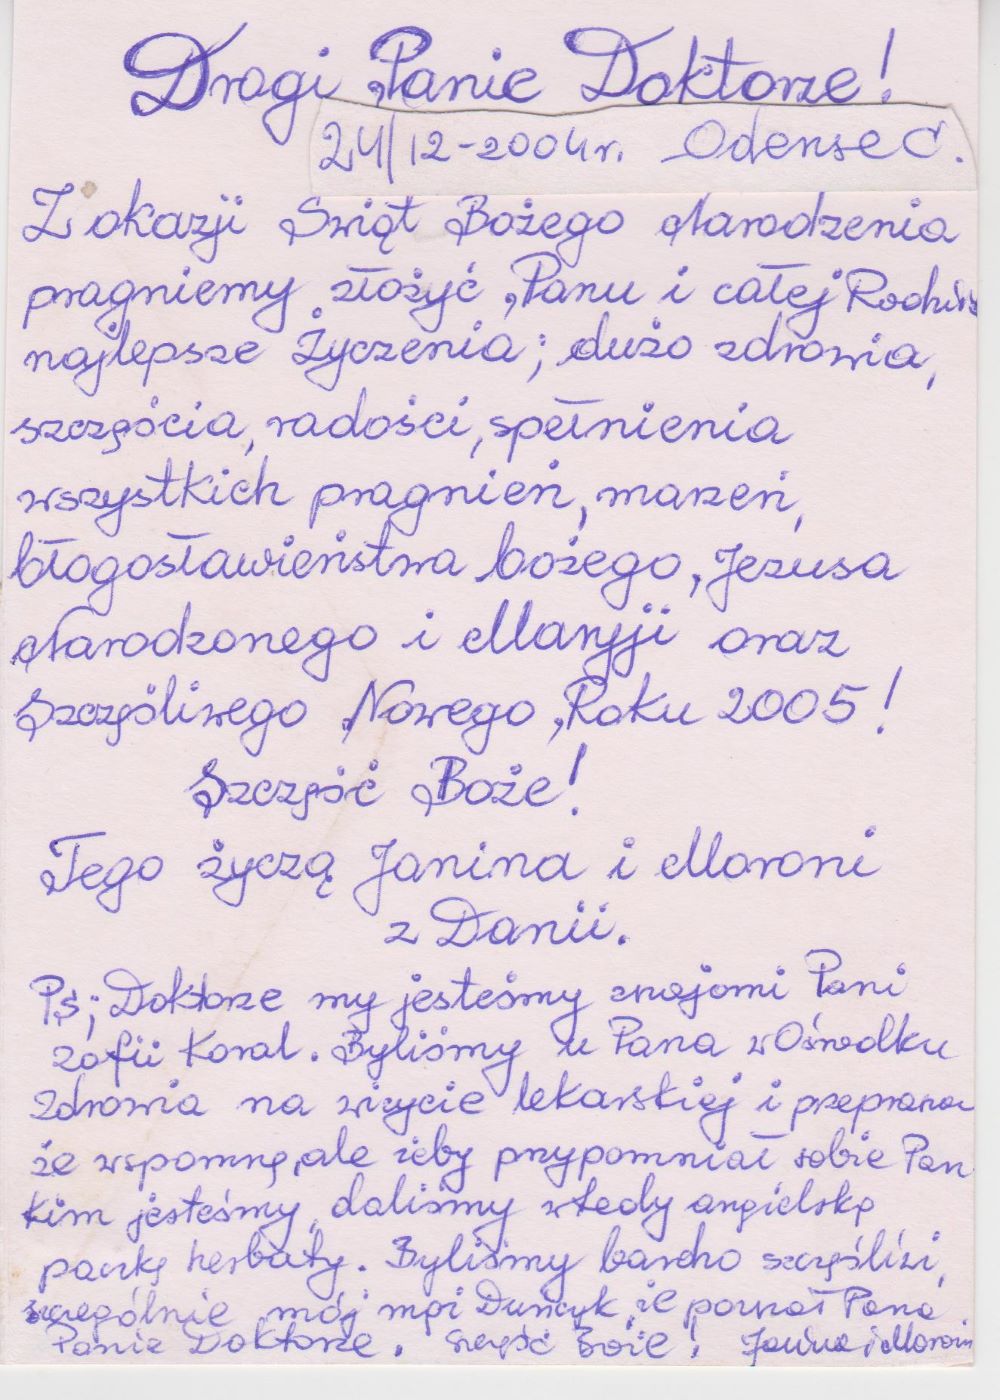 Drogi Panie Doktorze!
24/12-2004r. Odense C.
Z okazji Swiąt Bożego Narodzenia
pragniemy złożyć Panu i całej
najlepsze Życzenia; dużo zdrowia,
szczęścia, radości, spełnienia
wszystkich pragnień, marzeń,
błogosławieństwa bożego, Jezusa
Narodzonego i Maryji oraz
Szczęśliwego Nowego Roku 2005!
Szczęść Boże!
Tego życzą Janina i Maroni
z Danii.
Ps; Doktorze my jesteśmy znajomi Pani
Zofii Koral. Byliśmy u Pana w Ośrodku
Zdrowia na wizycie lekarskiej i
że wspomnę, ale żeby przypomniał sobie Pan
kim jesteśmy, daliśmy wtedy angielskę
paczkę herbaty. Byliśmy bardzo szczęśliwi,
szczególnie mój mąż Duńczyk, że poznał Pana
Panie Doktorze. Szczęść Boże! Janina i Maroni